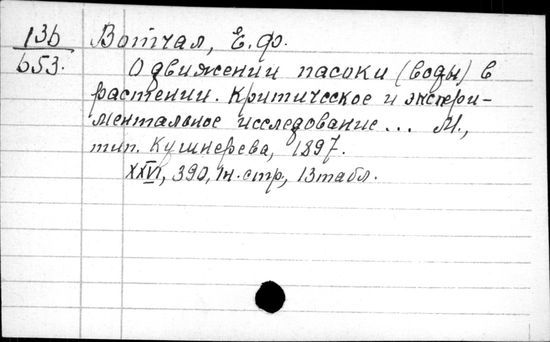 136 Вотчал, Е.Ф.
653.
О движении пасоки (воды) в
растении. Критическое и экспери-
ментальное исследование... М.,
тип. Кушнерева, 1897.
XXVI, 390, IX. стр, 13 табл.